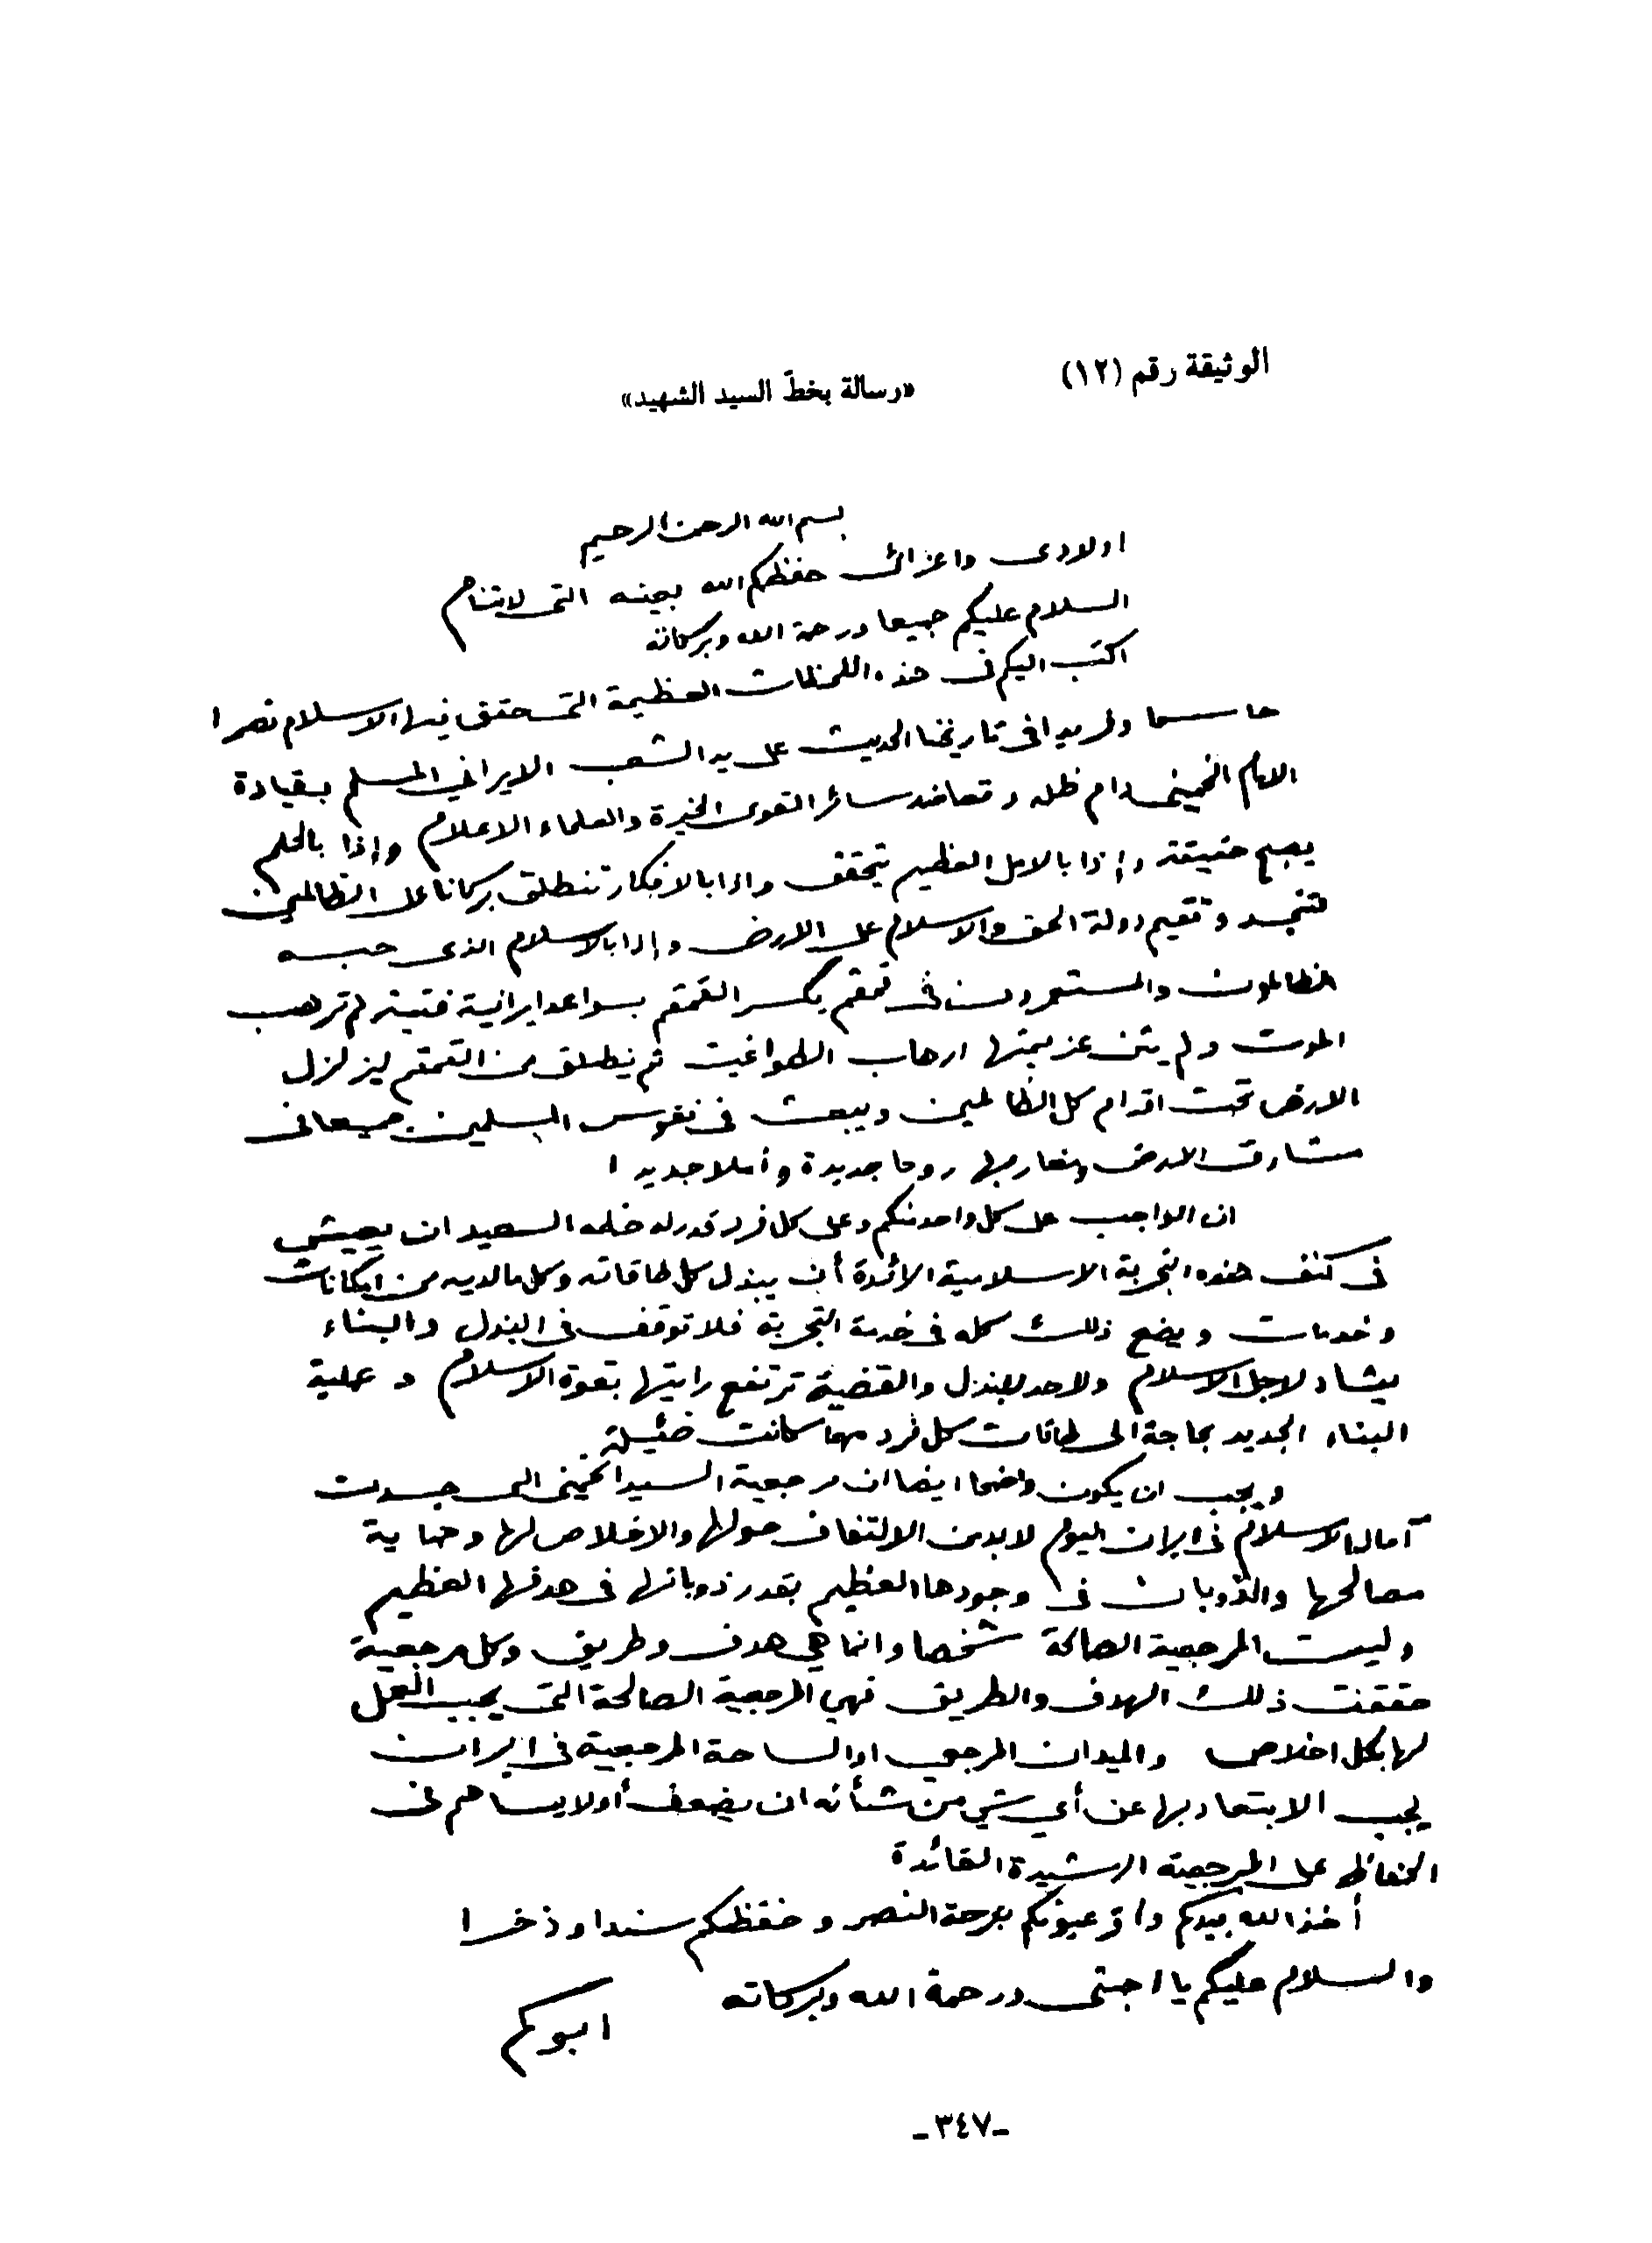 الوثيقة رقم (١٢)
«رسالة بخطّ السيد الشهيد»
بسم الله الرحمن الرحيم
اولادى واعزائى حفظكم الله بعينه التى لاتنام
السلام عليكم جميعا ورحمة الله وبركاته
اكتب اليكم فى هذه اللحظات العظيمة التى حقق فيها الاسلام نصرا
حاسما وفريدا فى تاريخنا الحديث على يد الشعب الايراني المسلم بقيادة
الامام الخمينى دام ظله وتعاضد سائر القوى الخيرة والعلماء الاعلام وإذا بالحلم
يصبح حقيقة وإذا بالامل العظيم يتحقق واذا بالافكار تنطلق بركانا على الظالمين
لتتجسد وتقيم دولة الحق والاسلام على الارض وإذا بالاسلام الذى حبسه
الظالمون والمستعمرون فى قمقم يكسر القمقم بسواعد ايرانية فتية لم ترهب
الموت ولم يثن عزيمتها ارهاب الطواغيت ثم ينطلق من القمقم ليزلزل
الارض تحت اقدام كل الظالمين ويبعث فى نفوس المسلمين جميعا فى
مشارق الارض ومغاربها روحا جديدة وأملا جديدا
ان الواجب على كل واحد منكم وعلى كل فرد قدر له حظه السعيد ان يعيش
فى كنف هذه التجربة الاسلامية الرائدة أن يبذل كل طاقاته وكل مالديه من امكانات
وخدمات ويضع ذلك كله فى خدمة التجربة فلا توقف فى البذل والبناء
يشاد لاجل الاسلام ولاحد للبذل والقضية ترتفع رايتها بقوة الاسلام وعملية
البناء الجديد بحاجة الى طاقات كل فرد مهما كانت ضئيلة.
ويجب ان يكون واضحا ايضا ان مرجعية السيد الخمينى التى جسدت
آمال الاسلام فى ايران اليوم لابد من الالتفاف حولها والاخلاص لها وحماية
مصالحها والذوبان فى وجودها العظيم بقدر ذوبانها فى هدفها العظيم
وليست المرجعية الصالحة شخصا وانما هي هدف وطريق وكل مرجعية
حققت ذلك الهدف والطريق فهي المرجعية الصالحة التى يجب العمل
لها بكل اخلاص والميدان المرجعي او الساحة المرجعية فى ايران
يجب الابتعاد بها عن أي شي من شأنه ان يضعف أو لايساهم فى
الحفاظ على المرجعية الرشيدة القائدة
أخذ الله بيدكم واقر عيونكم بفرحة النصر وحفظكم سندا وذخرا
والسلام عليكم يا احبتى ورحمة الله وبركاته
ابوكم
-٣٤٧-